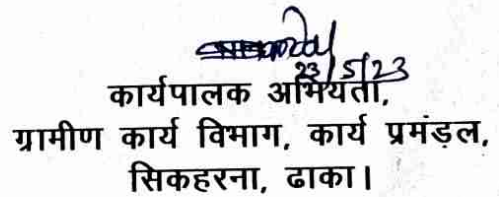 23/5/23
कार्यपालक अभियंता,
ग्रामीण कार्य विभाग, कार्य प्रमंड़ल,
सिकहरना, ढाका।